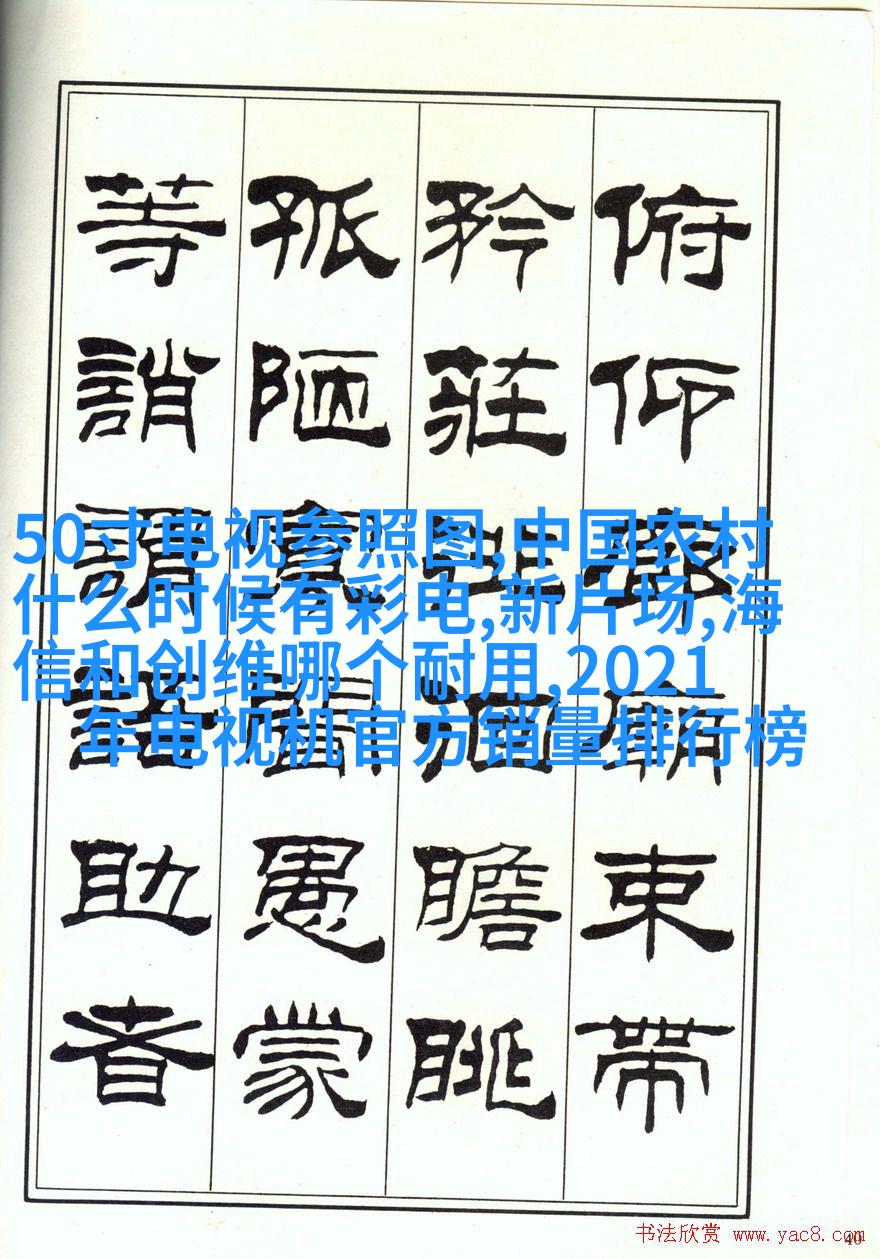 俯仰廊廟束帶
矜莊徘徊瞻眺
孤陋寡聞愚蒙
等誚謂語助者
50寸电视参照图,中国农村
什么时候有彩电,新片场,海
信和创维哪个耐用,2021
年电视机官方销量排行榜
书法欣赏 www.yac8.com
40